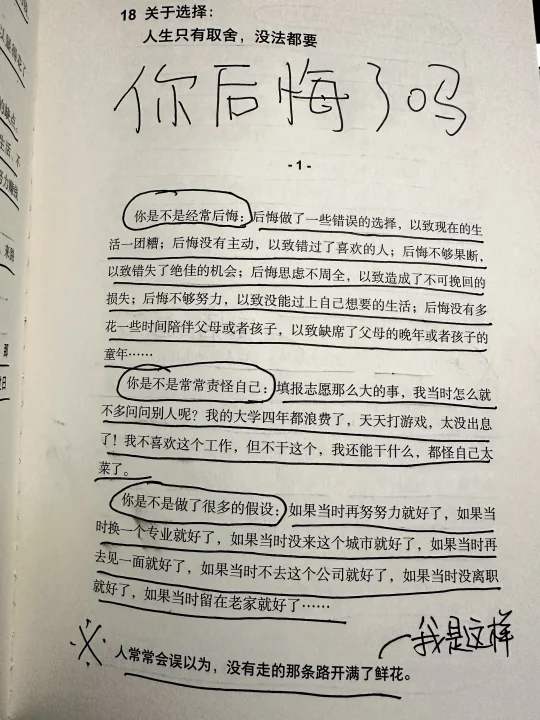 18 关于选择：
人生只有取舍，没法都要
你后悔了吗
- 1 -
你是不是经常后悔：后悔做了一些错误的选择，以致现在的生
活一团糟；后悔没有主动，以致错过了喜欢的人；后悔不够果断，
以致错失了绝佳的机会；后悔思虑不周全，以致造成了不可挽回的
损失；后悔不够努力，以致没能过上自己想要的生活；后悔没有多
花一些时间陪伴父母或者孩子，以致缺席了父母的晚年或者孩子的
童年……
你是不是常常责怪自己：填报志愿那么大的事，我当时怎么就
不多问问别人呢？我的大学四年都浪费了，天天打游戏，太没出息
了！我不喜欢这个工作，但不干这个，我还能干什么，都怪自己太
菜了。
你是不是做了很多的假设：如果当时再努努力就好了，如果当
时换一个专业就好了，如果当时没来这个城市就好了，如果当时再
去见一面就好了，如果当时不去这个公司就好了，如果当时没离职
就好了，如果当时留在老家就好了……
我是这样
人常常会误以为，没有走的那条路开满了鲜花。